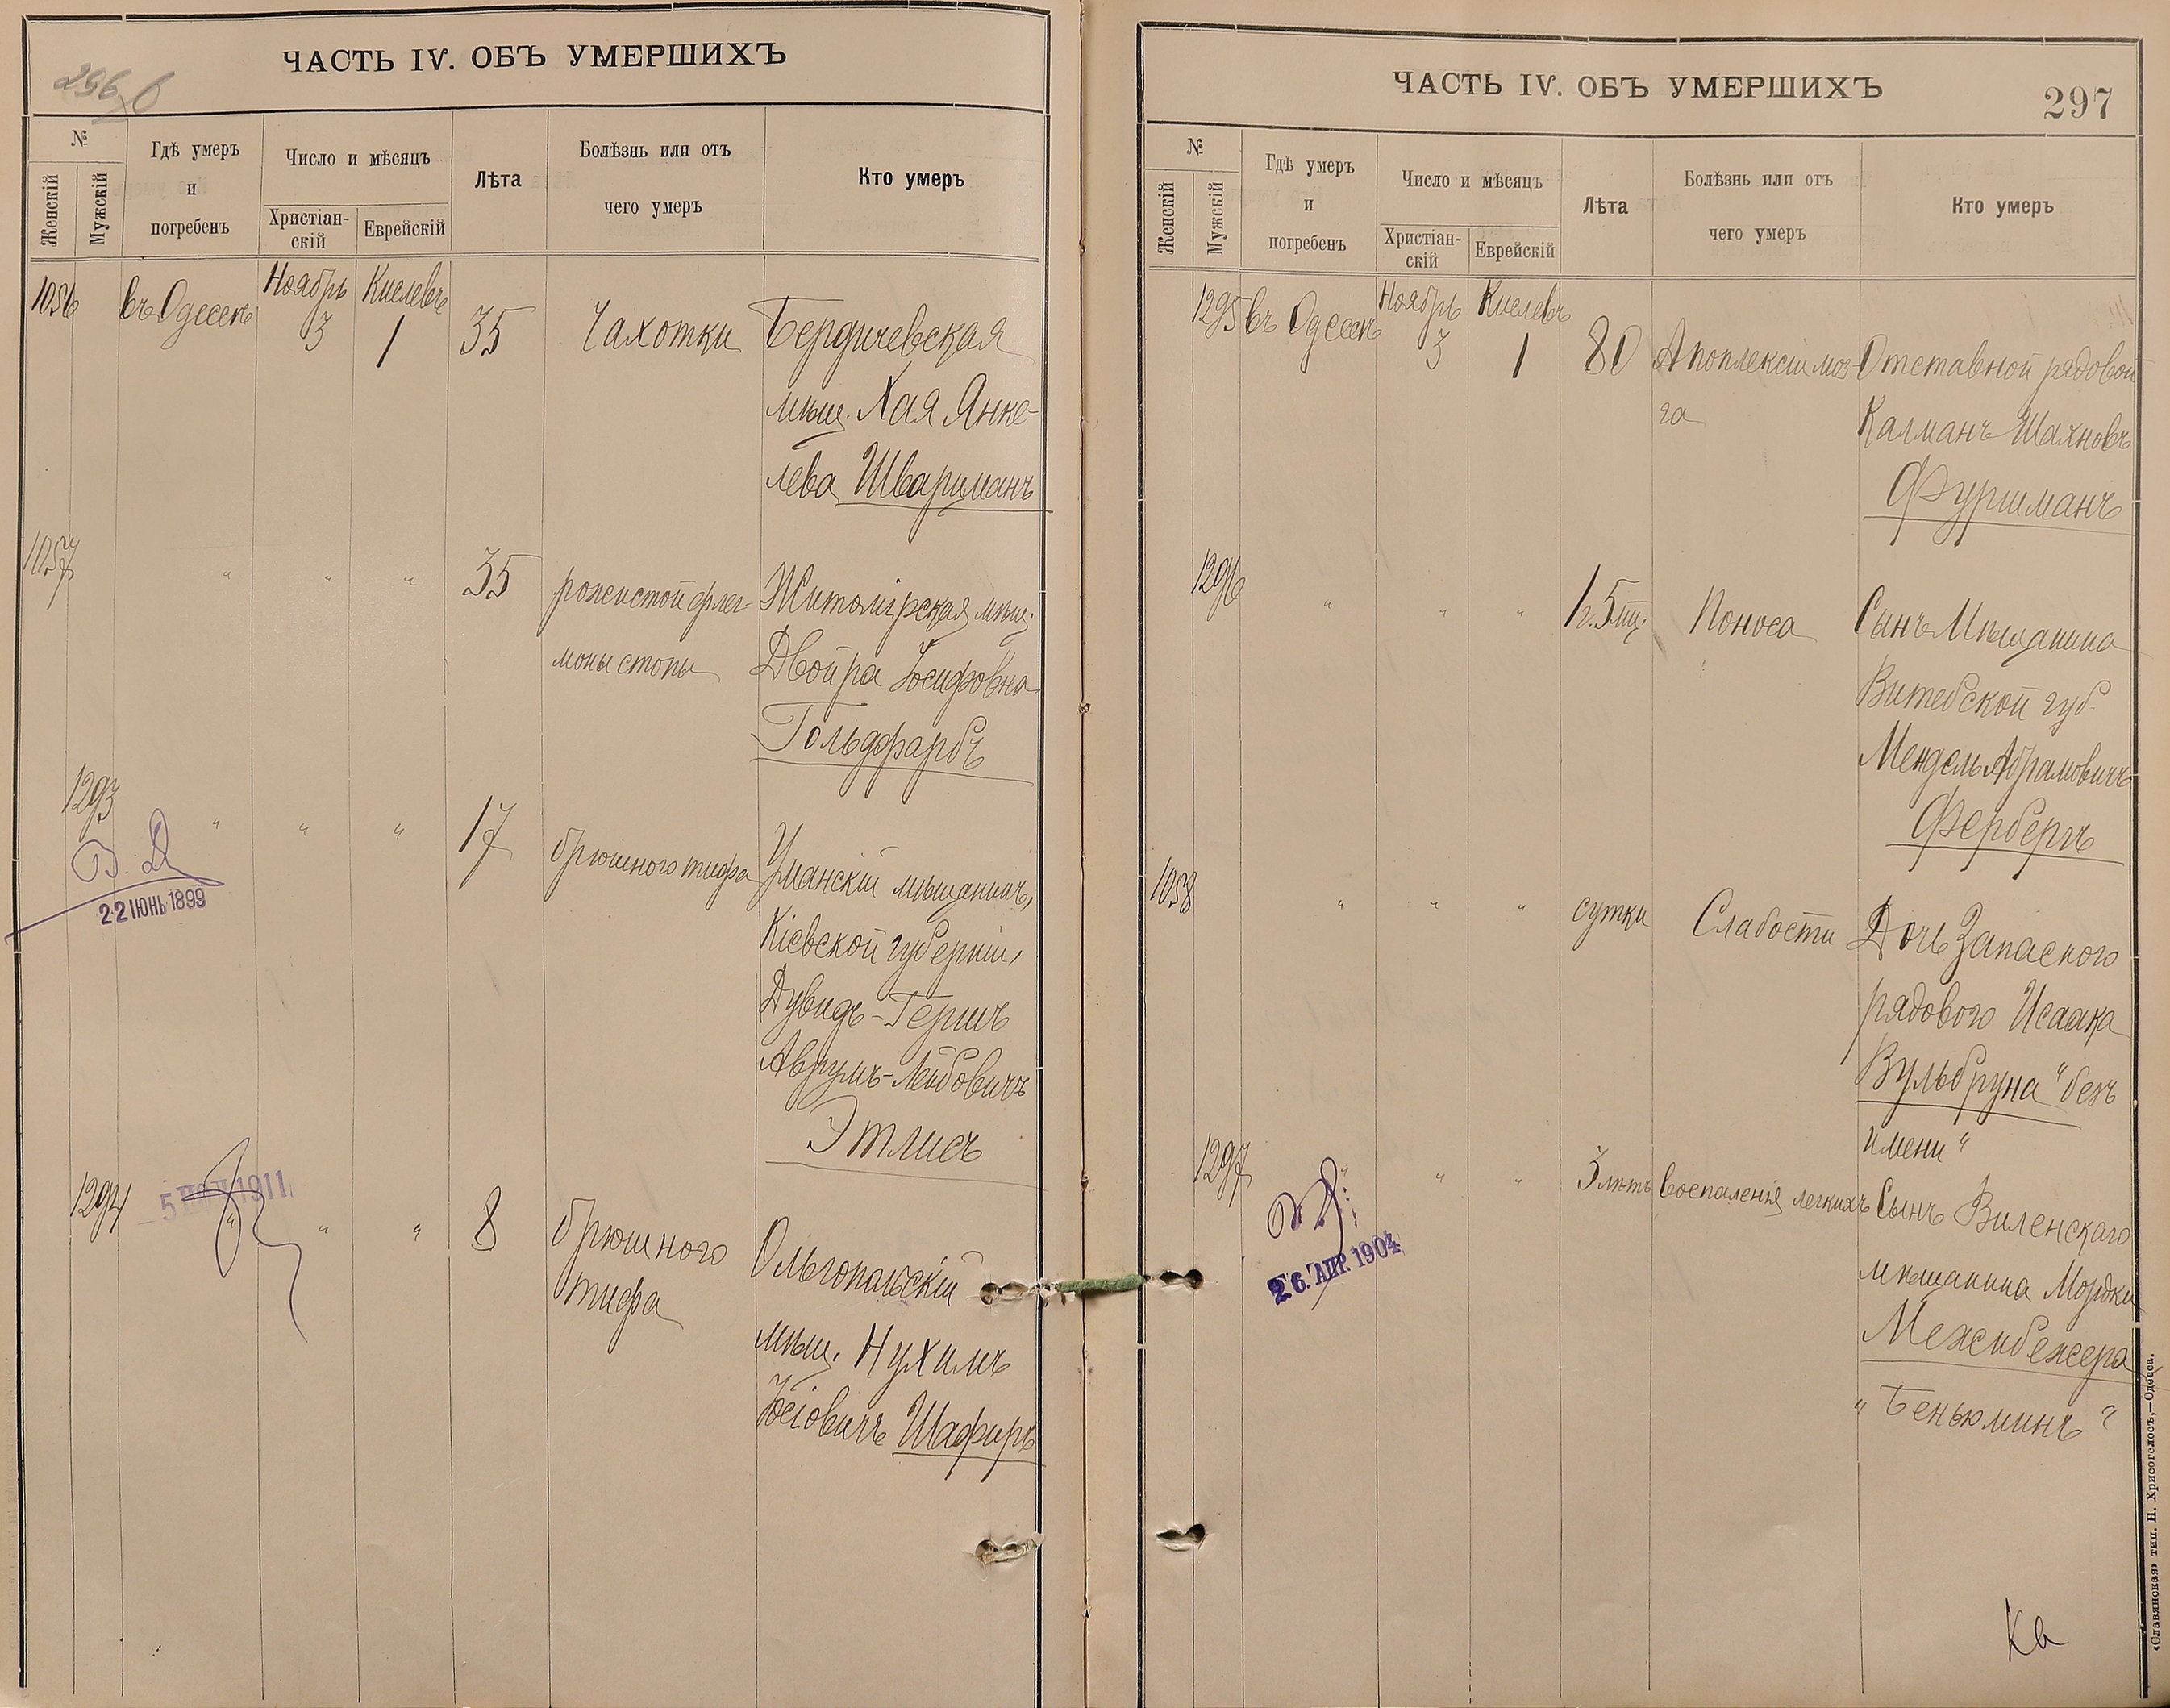 ЧАСТЬ IV. ОБЪ УМЕРШИХЪ
296
№
Женскій
Мужскій
Гдѣ умеръ
и
погребенъ
Число и мѣсяцъ
Христіан-
скій
Еврейскій
Лѣта
Болѣзнь или отъ
чего умеръ
Кто умеръ
1056 въ Одессѣ Ноябрь 3 Кислевъ 1 35 Чахотки Бердичевская
мѣщ. Хая Янке-
лева Шварцманъ
1057 " " " 35 рожистой флег- Житомірская мѣщ.
моны стопы Двойра Іосифовна
Гольдфарбъ
1293 " " " 17 брюшного тифа Уманскій мѣщанинъ,
22 ІЮНЬ 1899 Кіевской губерніи,
Дувидъ-Гершъ
Аврумъ-Лейбовичъ
Этлисъ
1294 " " " 8 брюшного Ольгопольскій
5 1911
тифа мѣщ. Нухимъ
Іосіовичъ Шафиръ
ЧАСТЬ IV. ОБЪ УМЕРШИХЪ
297
№
Женскій
Мужскій
Гдѣ умеръ
и
погребенъ
Число и мѣсяцъ
Христіан-
скій
Еврейскій
Лѣта
Болѣзнь или отъ
чего умеръ
Кто умеръ
1295 въ Одессѣ Ноябрь 3 Кислевъ 1 80 Апоплексіи моз- Отставной рядовой
га Калманъ Шахновъ
Фурманъ
1296 " " " 1 г. 5 мц. Поноса Сынъ Мѣщанина
Витебской губ.
Мендель Абрамовичъ
Ферберъ
1058 " " " сутки Слабости Дочь Запасного
рядового Исаака
Вульбруна "безъ
имени"
1297 " " " 3 лѣтъ Воспаленія легкихъ Сынъ Виленскаго
26. АПР. 1904 мѣщанина Мордки
Межибежера
"Беньюминъ"
Ка
«Славянская» тип. Н. Хрисогелосъ,—Одесса.